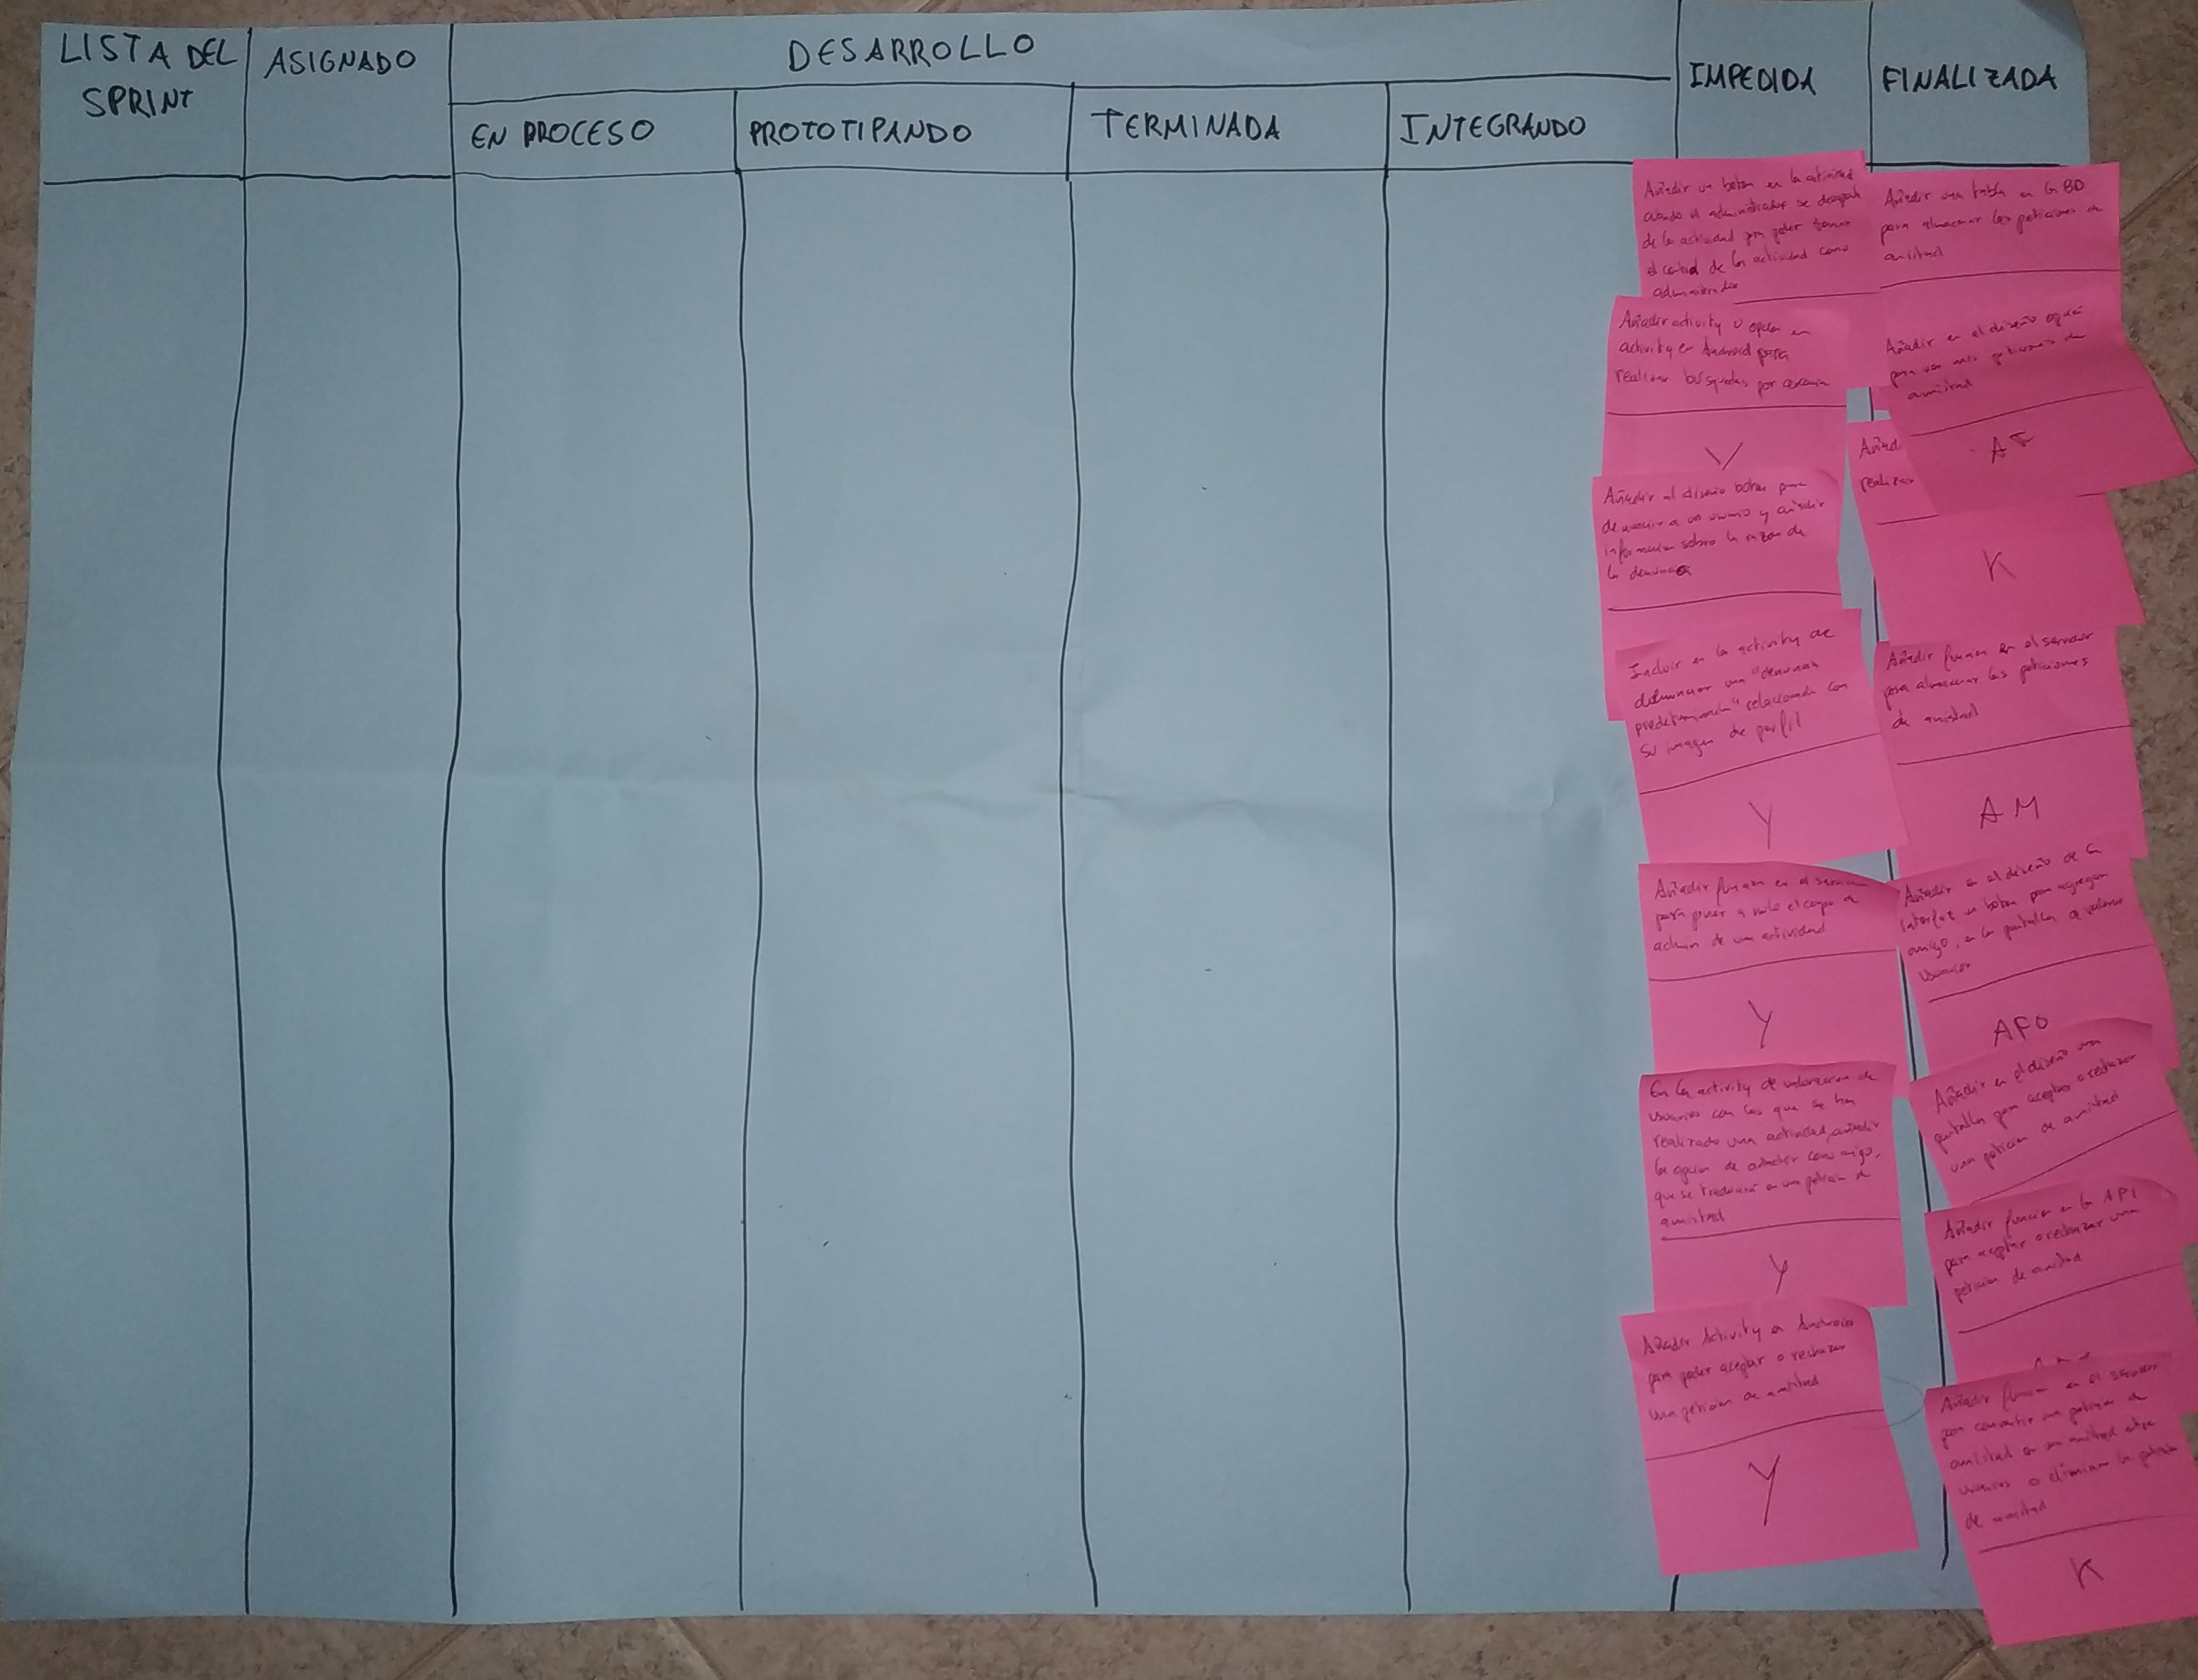 LISTA DEL
SPRINT
ASIGNADO
DESARROLLO
EN PROCESO
PROTOTIPANDO
TERMINADA
INTEGRANDO
IMPEDIDA
FINALIZADA
Añadir un boton en la actividad
cuando el administrador se desapunte
de la actividad para poder tomar
el control de la actividad como
administrador
Añadir activity u opcion en
activity en Android para
realizar busquedas por cercania
Y
Añadir al diseño boton para
denunciar a un usuario y añadir
informacion sobre la razon de
la denuncia
Incluir en la activity de
denunciar una "denuncia
predeterminada" relacionada con
su imagen de perfil
Y
Añadir funcion en el servidor
para poner a nulo el campo de
admin de una actividad
Y
En la activity de valoracion de
usuarios con los que se ha
realizado una actividad, añadir
la opcion de añadir como amigo,
que se traducirá en una peticion de
amistad
Y
Añadir Activity en Android
para poder aceptar o rechazar
una peticion de amistad
Y
Añadir una tabla en la BD
para almacenar las peticiones de
amistad
Añadir en el diseño opción
para ver mis peticiones de
amistad
AF
Añad
realizar
K
Añadir funcion en el servidor
para almacenar las peticiones
de amistad
AM
Añadir en el diseño de la
interfaz un boton para agregar
amigo, en la pantalla de valorar
usuarios
AFO
Añadir en el diseño una
pantalla para aceptar o rechazar
una peticion de amistad
Añadir funcion en la API
para aceptar o rechazar una
peticion de amistad
Añadir funcion en el servidor
para convertir una peticion de
amistad en una amistad entre
usuarios o eliminar la peticion
de amistad
K